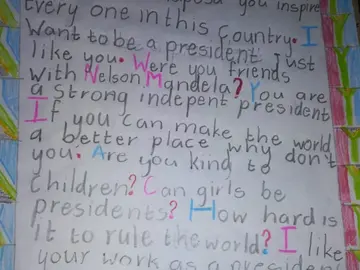 you inspire
Every one in this Country. I
Want to be a president Just
like you. Were you friends
with Nelson Mandela? You are
a strong indepent president
If you can make the world
a better place why don't
you. Are you kind to
children? Can girls be
presidents? How hard is
it to rule the world? I like
your work as a president